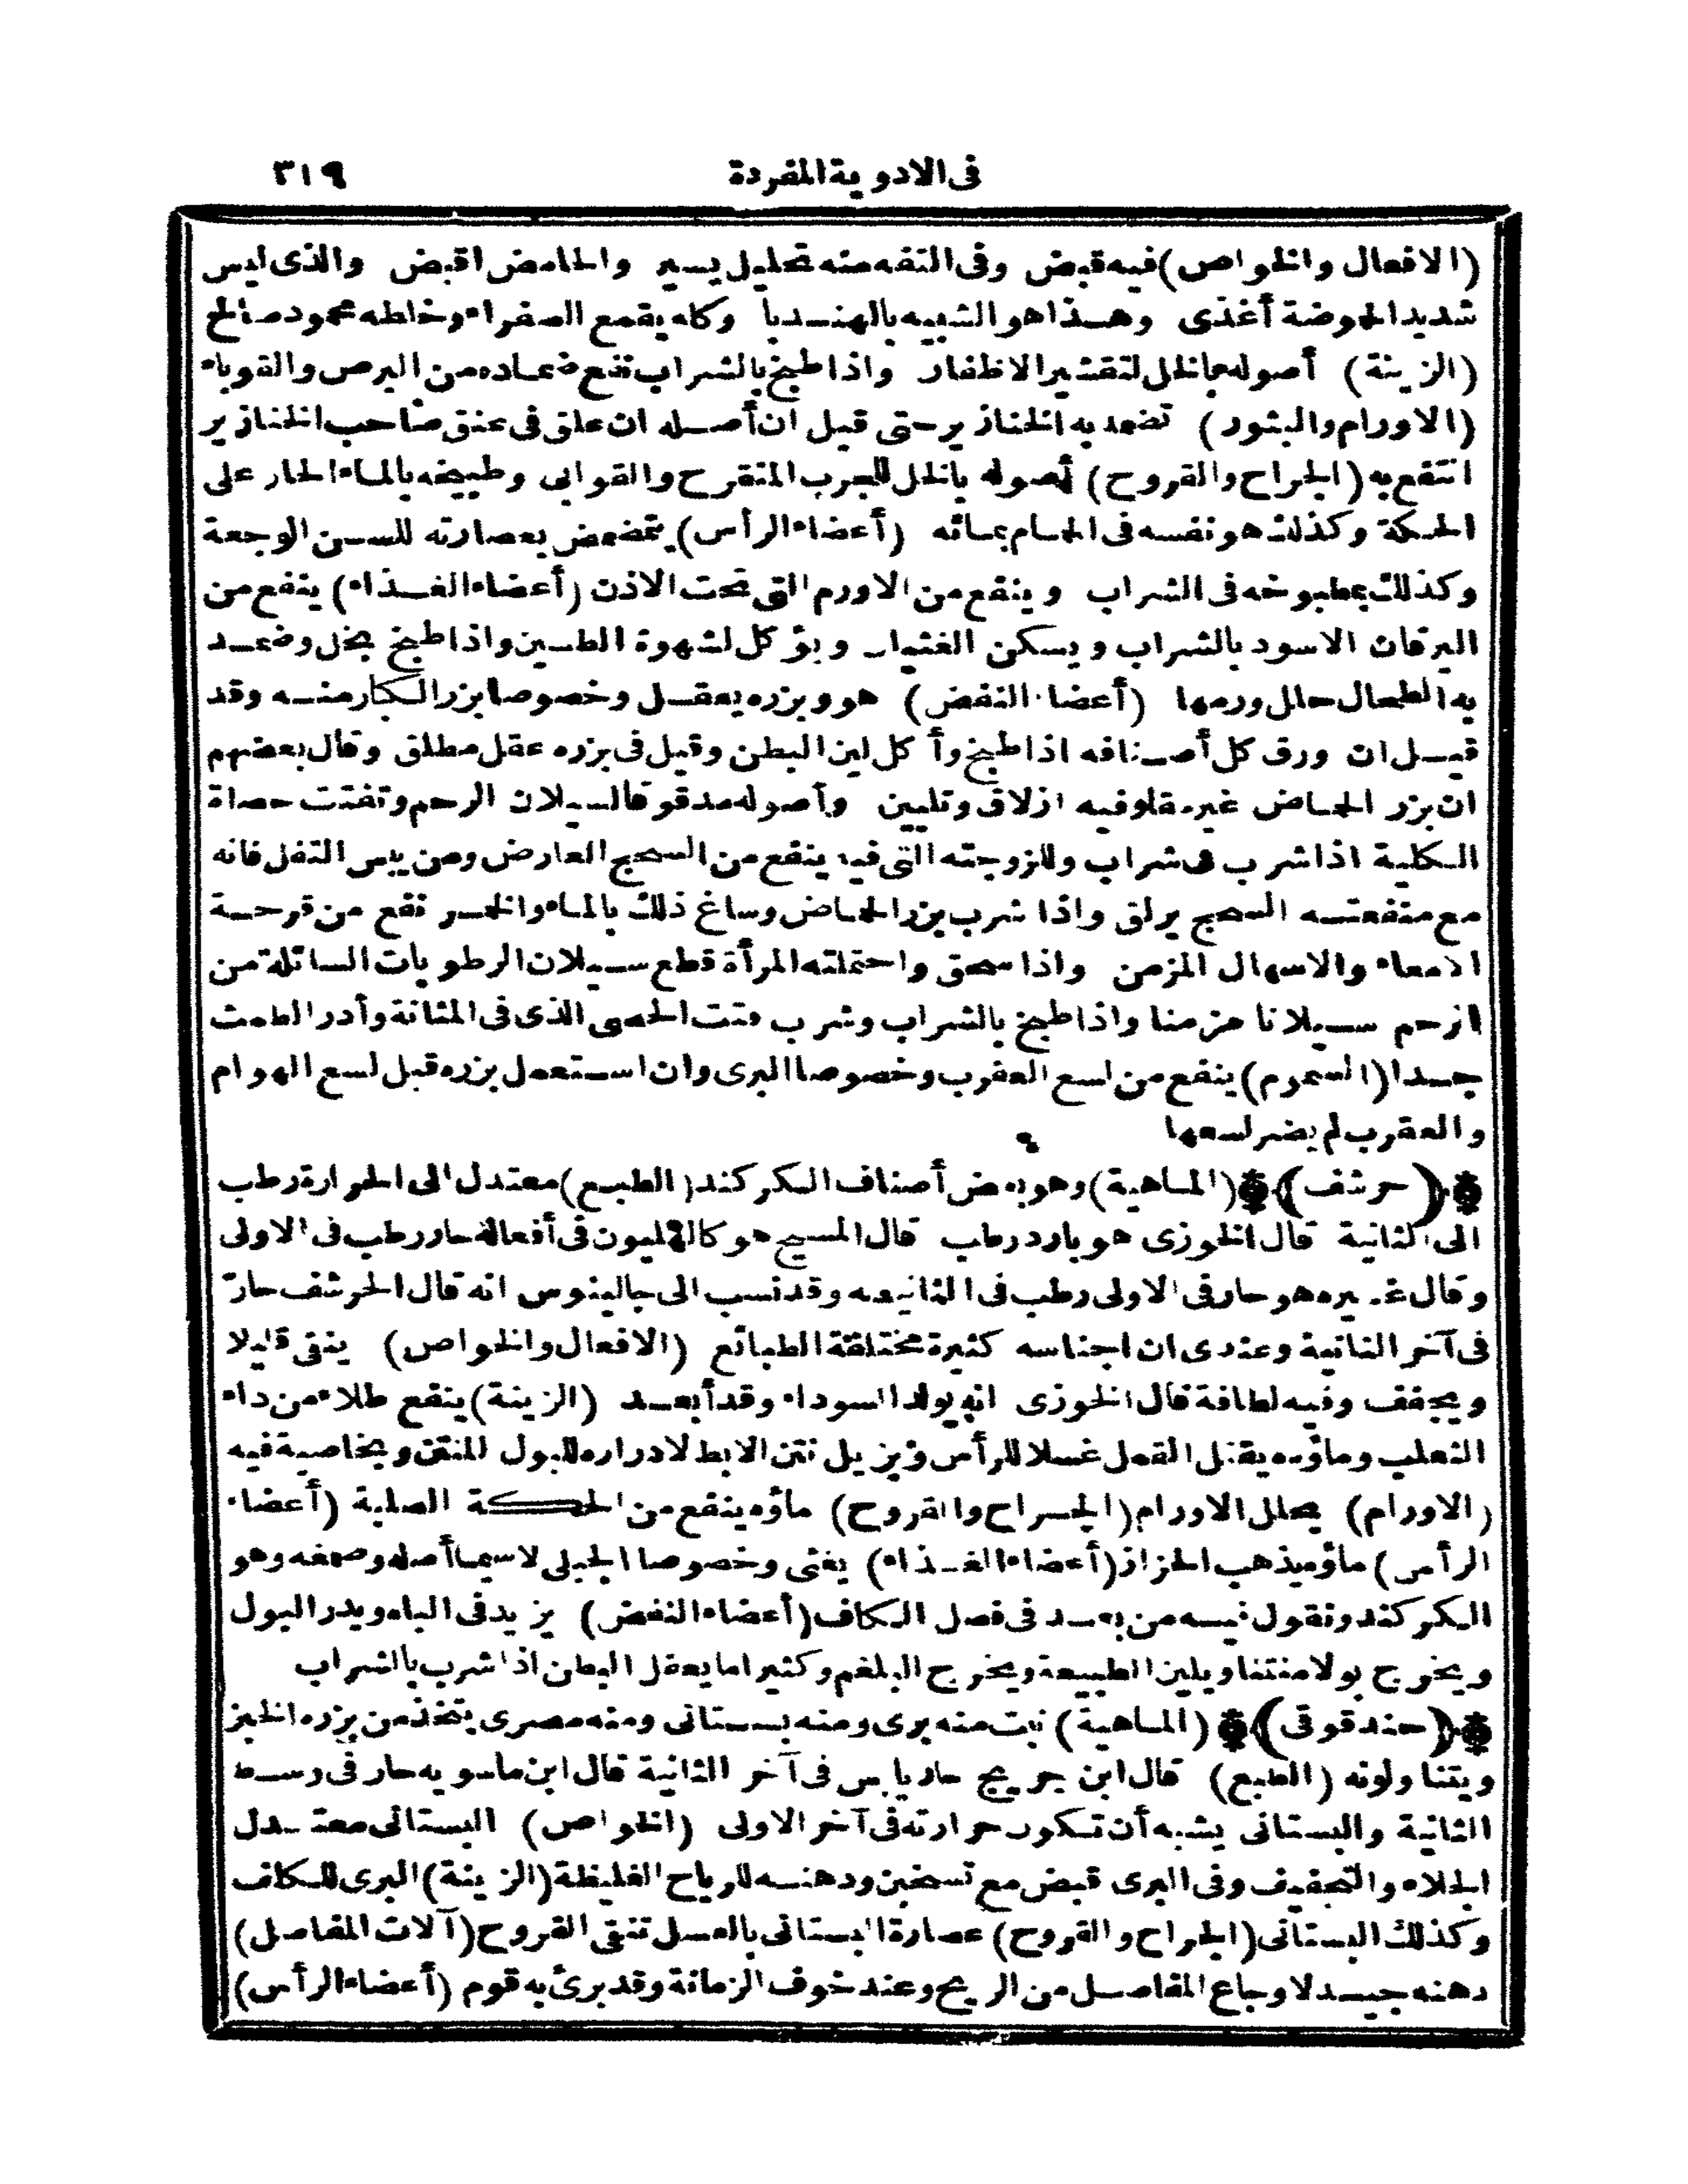 فى الادوية المفردة ٣١٩
(الافعال والخواص) فيه قبض وفى التفه منه تحليل يسير والحامض اقبض والذى ليس
شديد الحموضة أغذى وهذا هو الشبيه بالهندبا وكله يقمع الصفراء وخلطه محمود صالح
(الزينة) أصوله بالخل لتقشير الاظفار واذا طبخ بالشراب نفع ضماده من البرص والقوباء
(الاورام والبثور) تضمد به الخنازير حتى قيل ان أصله ان علق فى عنق صاحب الخنازير
انتفع به (الجراح والقروح) أصوله بالخل للجرب المتقرح والقوابى وطبيخه بالماء الحار على
الحكة وكذلك هو نفسه فى الحمام بمائه (أعضاء الرأس) يتمضمض بعصارته للسن الوجعة
وكذلك بمطبوخه فى الشراب وينفع من الاورم التى تحت الاذن (أعضاء الغذاء) ينفع من
اليرقان الاسود بالشراب ويسكن الغثيان ويؤكل لشهوة الطين واذا طبخ بخل وضمد
به الطحال حلل ورمها (أعضاء النفض) هو وبزره يعقل وخصوصا بزر الكبار منه وقد
قيل ان ورق كل أصنافه اذا طبخ وأكل لين البطن وقيل فى بزره عقل مطلق وقال بعضهم
ان بزر الحماض غير مقلو فيه ازلاق وتليين وأصوله مدقوقا لسيلان الرحم وتفتت حصاة
الكلية اذا شرب فى شراب وللزوجته التى فيه ينفع من السحج العارض ومن يبس الثفل فانه
مع منفعته السحج يزلق واذا شرب بزر الحماض وساغ ذلك بالماء والخمر نفع من قرحة
الامعاء والاسهال المزمن واذا سحق واحتملته المرأة قطع سيلان الرطوبات السائلة من
الرحم سيلانا مزمنا واذا طبخ بالشراب وشرب فتت الحصى الذى فى المثانة وأدر الطمث
جدا (السموم) ينفع من لسع العقرب وخصوصا البرى وان استعمل بزره قبل لسع الهوام
والعقرب لم يضر لسعها
(حرشف) (الماهية) وهو بعض أصناف الكركند (الطبع) معتدل الى الحرارة رطب
الى الثانية قال الخوزى هو بارد رطب قال المسيح هو كالهليون فى أفعاله حار رطب فى الاولى
وقال غيره هو حار فى الاولى رطب فى الثانيه وقد نسب الى جالينوس انه قال الحرشف حار
فى آخر الثانية وعندى ان اجناسه كثيرة مختلفة الطبائع (الافعال والخواص) ينقى قليلا
ويجفف وفيه لطافة قال الخوزى انه يولد السوداء وقد أبعد (الزينة) ينفع طلاء من داء
الثعلب وماؤه يقتل القمل غسلا للرأس ويزيل نتن الابط لادراره للبول المنتن وبخاصية فيه
(الاورام) يحلل الاورام (الجراح والقروح) ماؤه ينفع من الحكة الصلبة (أعضاء
الرأس) ماؤه يذهب الحزاز (أعضاء الغذاء) يغثى وخصوصا الجبلى لاسيما أصله وصمغه وهو
الكركند ونقول فيه من بعد فى فصل الكاف (أعضاء النفض) يزيد فى الباه ويدر البول
ويخرج بولا منتنا ويلين الطبيعة ويخرج البلغم وكثيرا ما يعقل البطن اذا شرب بالشراب
(حندقوقى) (الماهية) نبت منه برى ومنه بستانى ومنه مصرى يتخذ من بزره الخبز
ويتناولونه (الطبع) قال ابن جريج حار يابس فى آخر الثانية قال ابن ماسويه حار فى وسط
الثانية والبستانى يشبه أن تكون حرارته فى آخر الاولى (الخواص) البستانى معتدل
الجلاء والتجفيف وفى البرى قبض مع تسخين ودهنه للرياح الغليظة (الزينة) البرى للكلف
وكذلك البستانى (الجراح والقروح) عصارة البستانى بالعسل تنقى القروح (آلات المفاصل)
دهنه جيد لاوجاع المفاصل من الريح وعند خوف الزمانة وقد برئ به قوم (أعضاء الرأس)